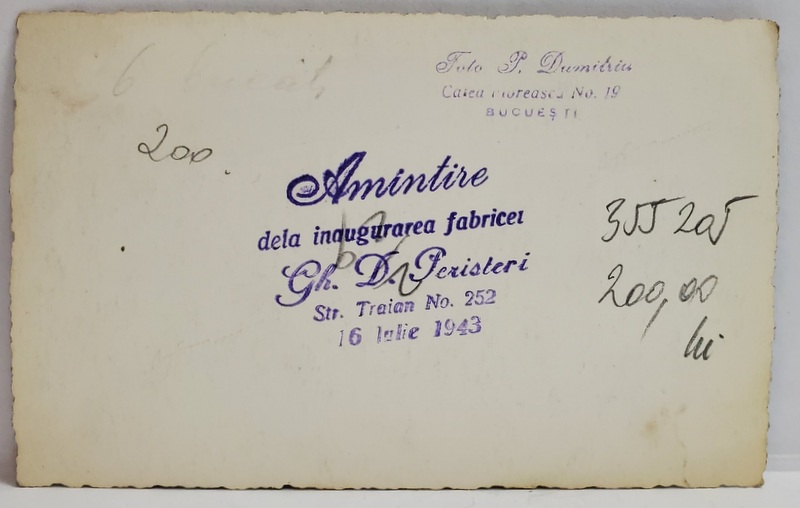 Foto P. Dumitriu
Calea Floreasca No. 19
BUCUEȘTI
200
Amintire
dela inaugurarea fabricei
Gh. D. Peristeri
Str. Traian No. 252
16 Iulie 1943
355205
200,00
lei